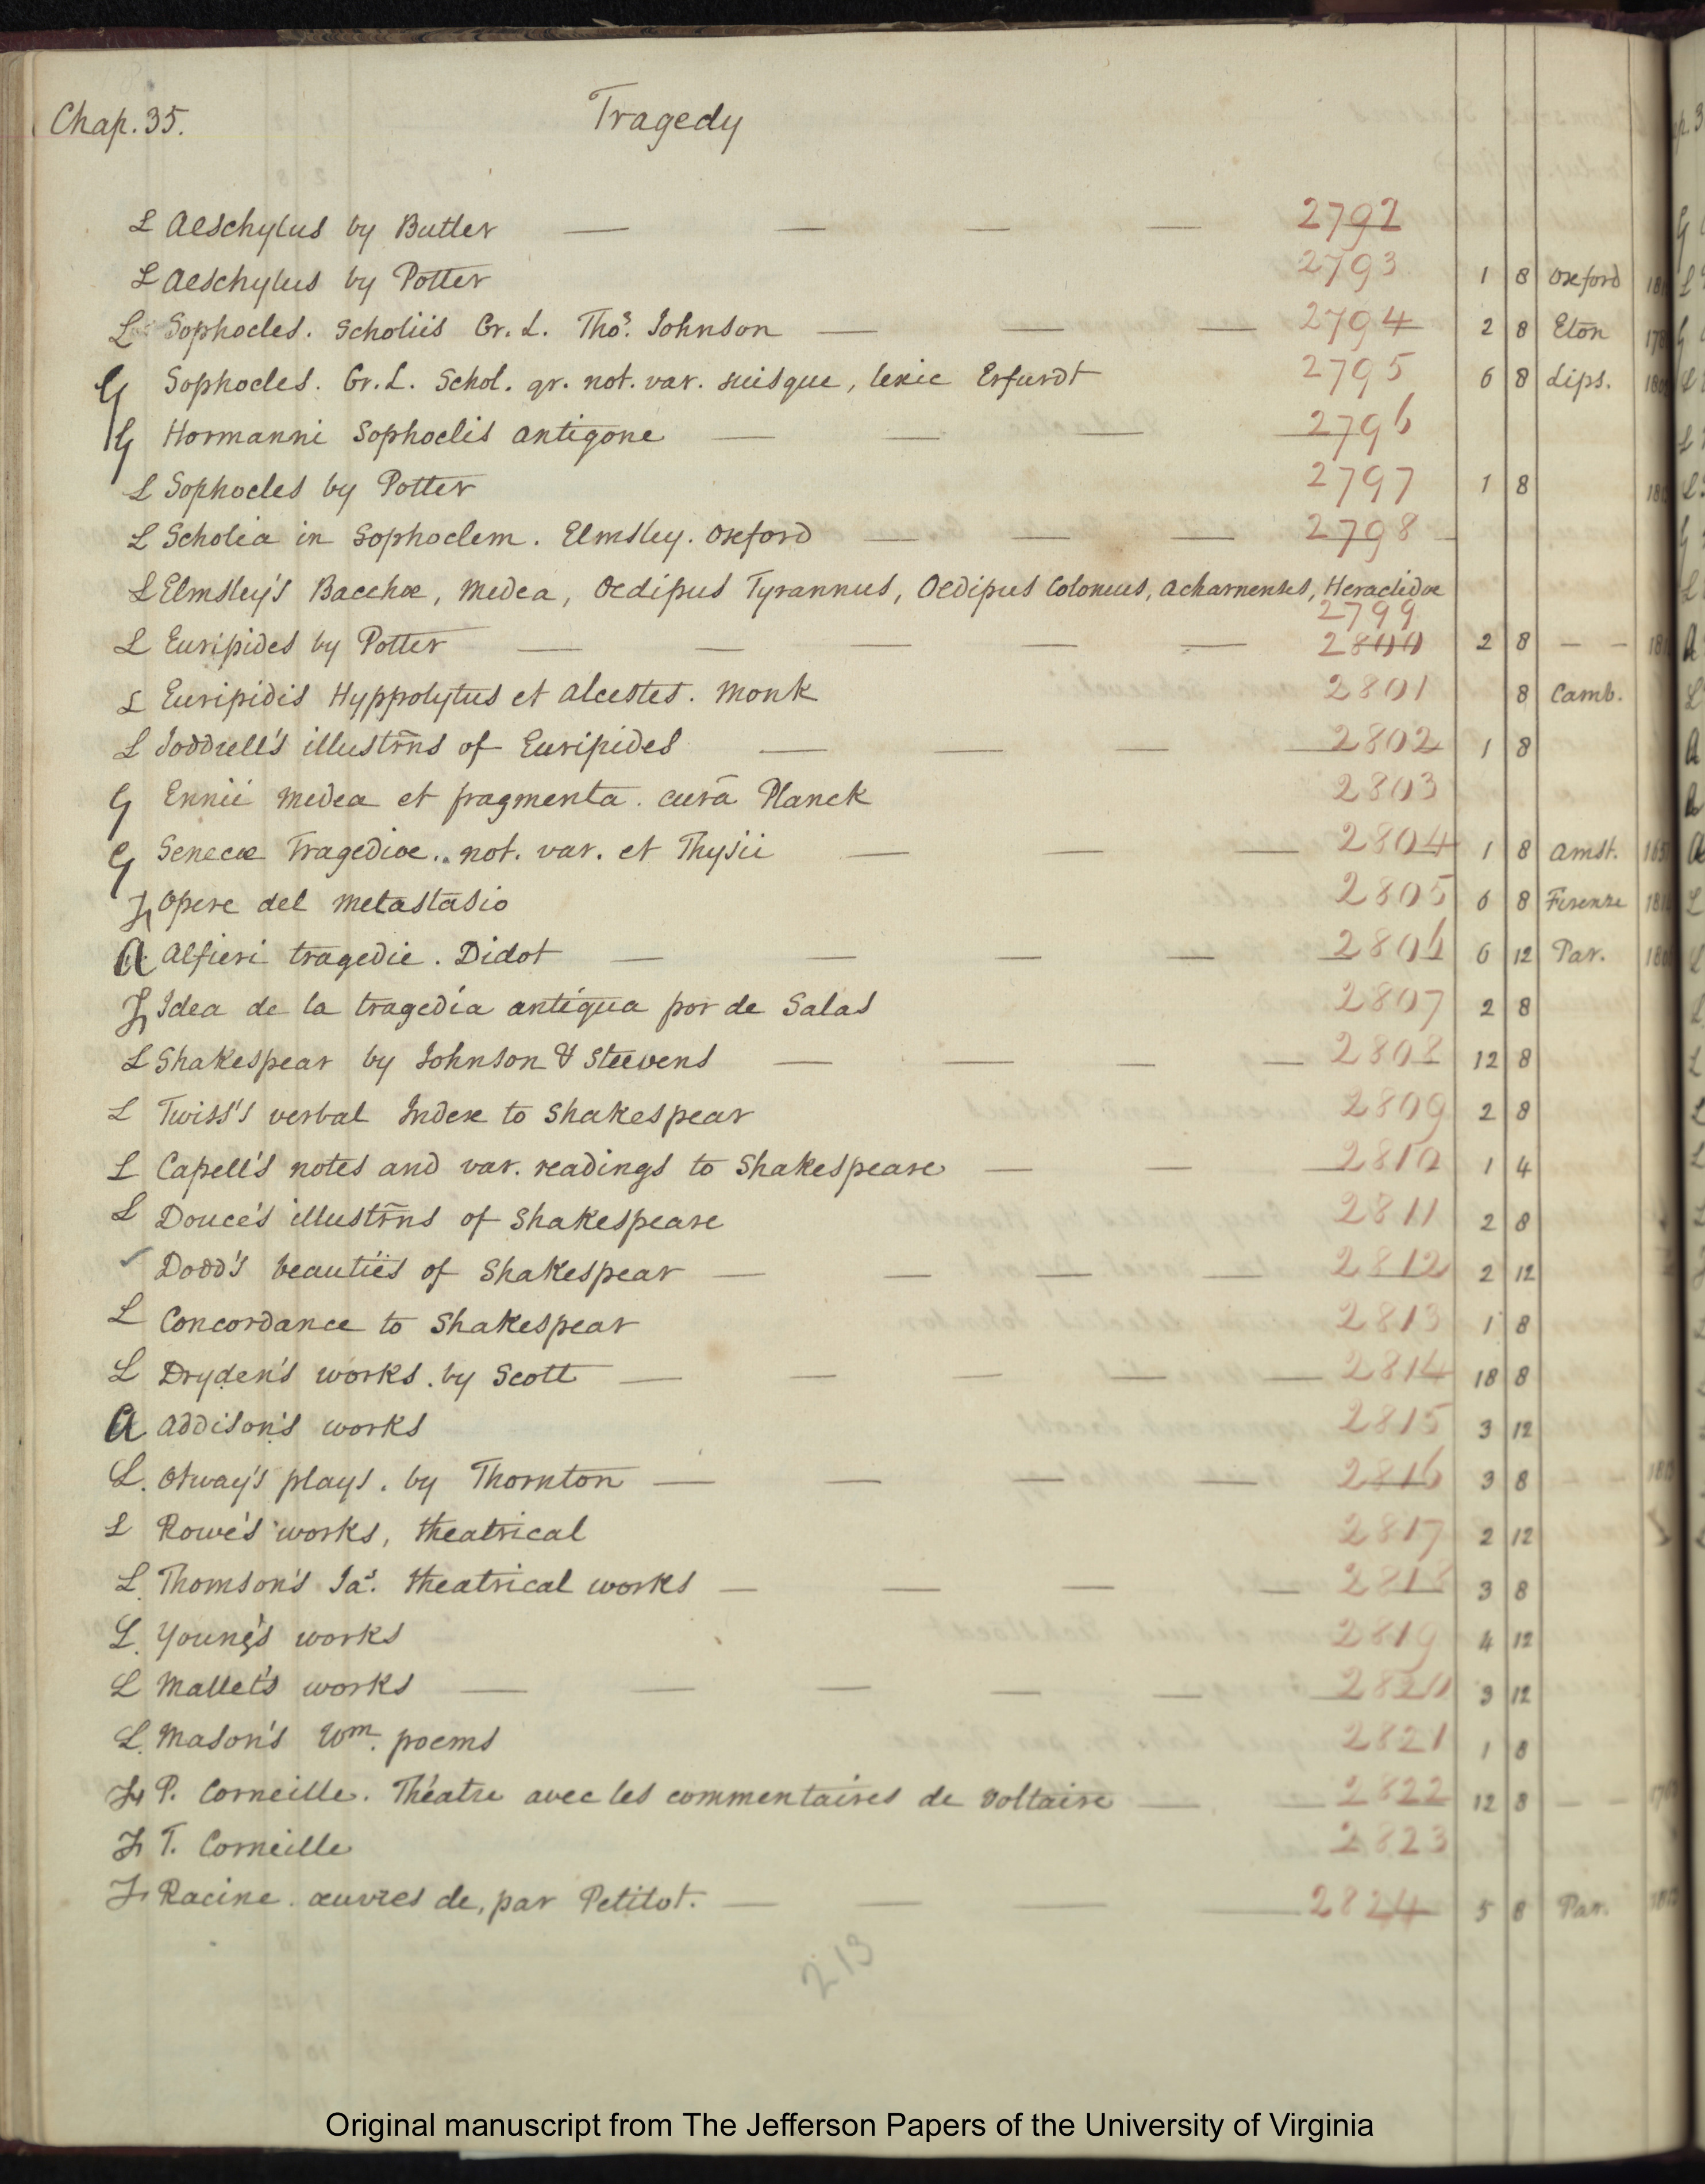 Chap. 35. Tragedy
L Aeschylus by Butler — — — — 2792
L Aeschylus by Potter 2793 1 8 Oxford
L Sophocles. Scholiis Gr. L. Thos. Johnson — — — 2794 2 8 Eton
G Sophocles. Gr. L. Schol. gr. not. var. suisque, lexic Erfurdt 2795 6 8 Lips.
G Hormanni Sophoclis Antigone — — — — 2796
L Sophocles by Potter 2797 1 8
L Scholia in Sophoclem. Elmsley. Oxford — — — 2798
L Elmsley's Bacchæ, Medea, Oedipus Tyrannus, Oedipus Coloneus, Acharnenses, Heraclidæ
2799
L Euripides by Potter — — — — — 2800 2 8 — —
L Euripidis Hyppolytus et Alcestes. Monk 2801 8 Camb.
L Joddrell's illustrns of Euripides — — — — 2802 1 8
G Ennii Medea et fragmenta. curâ Planck 2803
G Senecæ Tragediæ. not. var. et Thysii — — — 2804 1 8 Amst.
Opere del Metastasio 2805 6 8 Firenze
A Alfieri tragedie. Didot — — — — — 2806 6 12 Par.
Idea de la tragedia antigua por de Salas 2807 2 8
L Shakespear by Johnson & Steevens — — — — 2808 12 8
L Twiss's verbal Index to Shakespear 2809 2 8
L Capell's notes and var. readings to Shakespeare — — — 2810 1 4
L Douce's illustrns of Shakespeare 2811 2 8
✓ Dodd's beauties of Shakespear — — — — 2812 2 12
L Concordance to Shakespear 2813 1 8
L Dryden's works. by Scott — — — — — 2814 18 8
A Addison's works 2815 3 12
L. Otway's plays. by Thornton — — — — 2816 3 8
L Rowe's works, theatrical 2817 2 12
L. Thomson's Jas. theatrical works — — — — 2818 3 8
L. Young's works 2819 4 12
L Mallet's works — — — — — — 2820 3 12
L. Mason's Wm. poems 2821 1 8
P. Corneille. Théatre avec les commentaires de Voltaire — — 2822 12 8 — —
T. Corneille 2823
Racine. œuvres de, par Petitot. — — — — 2824 5 8 Par.
213
Original manuscript from The Jefferson Papers of the University of Virginia